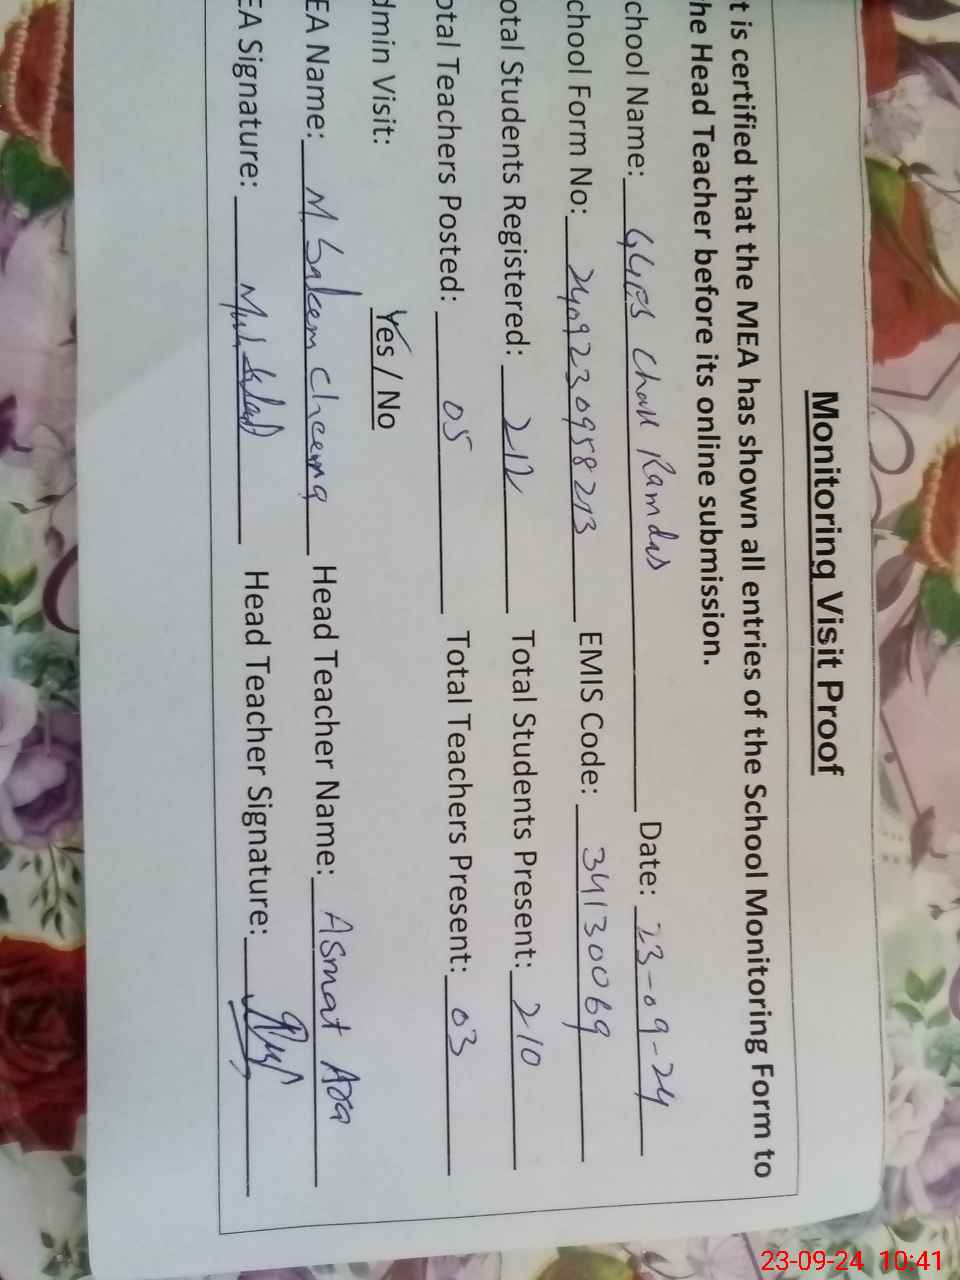 Monitoring Visit Proof
t is certified that the MEA has shown all entries of the School Monitoring Form to
he Head Teacher before its online submission.
chool Name: GGPS Chak Ramdas Date: 23-09-24
chool Form No: 2409230958213 EMIS Code: 34130069
otal Students Registered: 212 Total Students Present: 210
otal Teachers Posted: 05 Total Teachers Present: 03
dmin Visit: Yes / No
EA Name: M. Saleem Cheema Head Teacher Name: Asmat Ara
EA Signature: Head Teacher Signature:
23-09-24 10:41